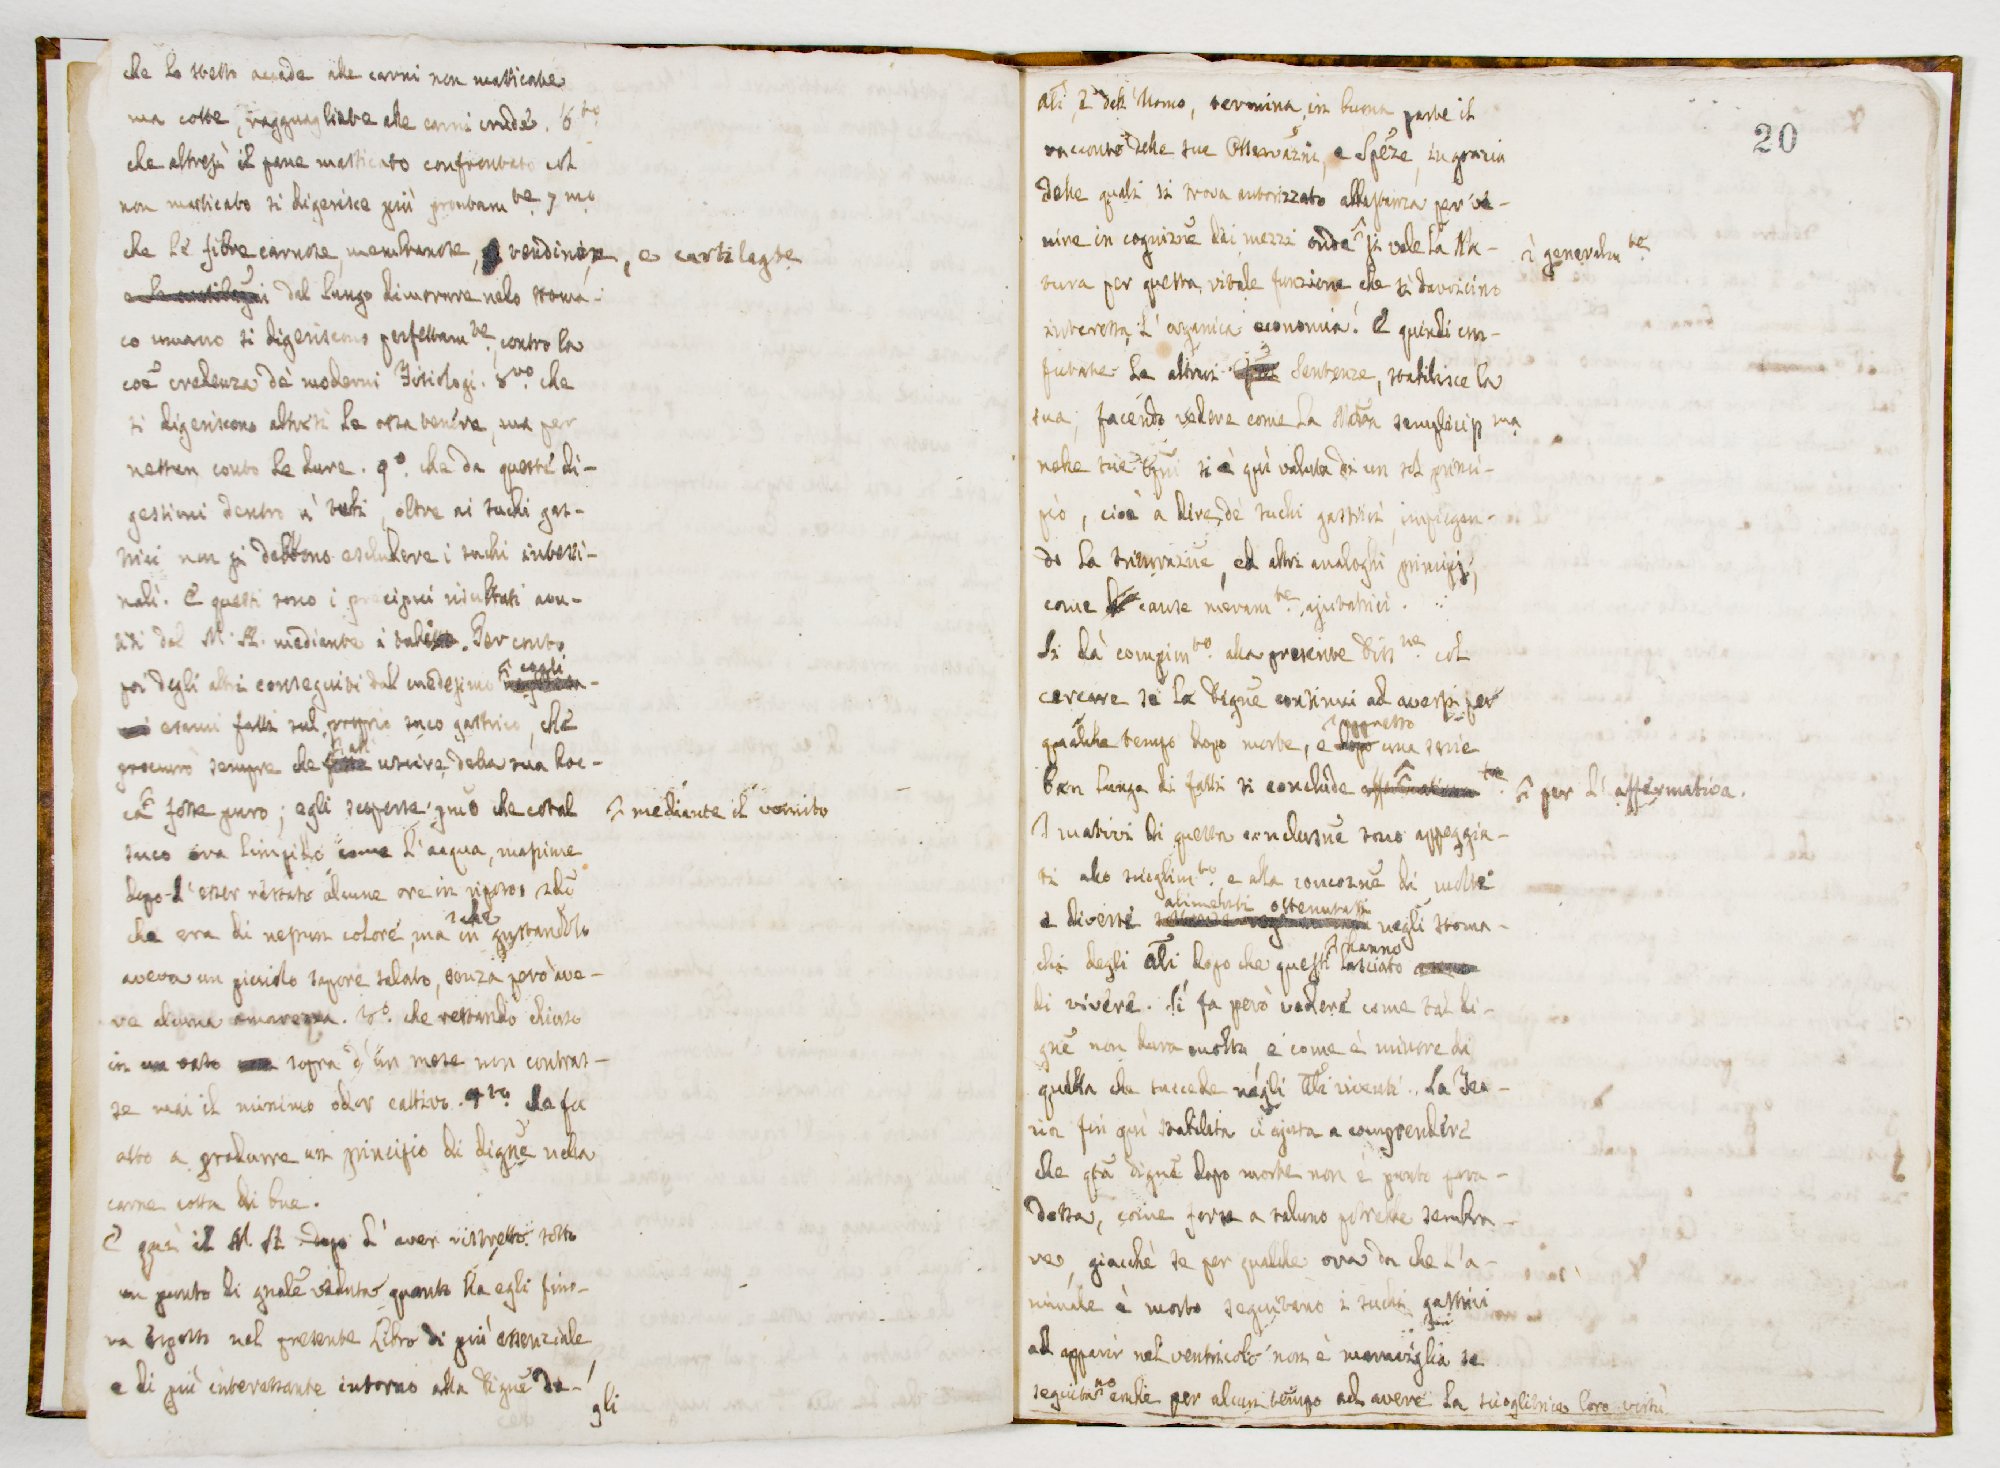 che lo stesso accade alle carni non masticate
ma cotte, ragguagliate alle carni crude. 6.to
che altresì il pane masticato confrontato col
non masticato si digerisce più prontam.te 7.mo
che le fibre carnose, membranose, tendinose, e cartilagse
dal lungo dimorare nello stoma-
co umano si digeriscono perfettam.te, contro la
coẽ credenza de' moderni Fisiologi. 8.vo che
si digeriscono altresì le ossa tenere, ma per
nessun conto le dure. 9.o che da queste di-
gestioni dentro a' tubi, oltre ai suchi gas-
trici non si debbono escludere i suchi intesti-
nali. E questi sono i precipui risultati avu-
tisi dal N. A. mediante i tubi. Per conto
poi degli altri conseguiti dal medesimo cogli
esami fatti sul proprio suco gastrico, che
procurò sempre che nell' uscire dalla sua boc-
ca fosse puro; egli scoperse p.mo che cotal
mediante il vomito
suco era limpido come l'acqua, massime
dopo l'esser restato alcune ore in riposo 2.do
che era di nessun colore, ma che in gustandolo
aveva un picciolo sapore salato, senza però ave-
re alcuna amarezza. 3.o che restando chiuso
in un vaso sopra d'un mese non contras-
se mai il minimo odor cattivo. 4.to che fu
atto a produrre un principio di digne nella
carne cotta di bue.
E qui il N. A. dopo l'aver ristretto sotto
un punto di gnale veduta quanto ha egli fino-
ra esposto nel presente Libro di più essenziale
e di più interessante intorno alla digne de-
gli
20
ali, e dell'Uomo, termina in buona parte il
racconto delle sue Osservazni, e Spẽze, in grazia
delle quali si trova autorizzato abbastanza per ve-
nire in cognizne dei mezzi onde si vale la Na-
generalm.te
tura per questa vitale funzione che sì davvicino
interessa l'organica economia. E quindi con-
futate le altrui Sentenze, stabilisce la
sua, facendo vedere come la Natura semplicissma
nelle sue si è qui valuta di un sol princi-
pio, cioè a dire de' suchi gastrici, impiegan-
do la triturazne, ed altri analoghi principj,
come cause meram.te ajutatrici.
Si dà compim.to alla presente Diss.ne col
cercare se la digne continui ad aversi per
qualche tempo dopo morte, e appresso una serie
ben lunga di fatti si conclude
per l'affermativa.
I motivi di questa conclusne sono appoggia-
ti allo scioglim.to e alla concozne di molte
e diverse alimenti ottenutasi negli stoma-
chi degli ali dopo che questi hanno lasciato
di vivere. Si fa però vedere come tal di-
gne non dura molto e come è minore di
quella che succede negli ali viventi. La Teo-
ria fin qui stabilita ci ajuta a comprendere
che qta digne dopo morte non è punto para-
dossa, come forse a taluno potrebbe sembra-
re, giacchè se per qualche ora da che l'a-
nimale è morto seguitano i suchi gastrici
ad apparir nel ventricolo non è meraviglia se
seguitano anche per alcun tempo ad avere la scioglitrice loro virtù